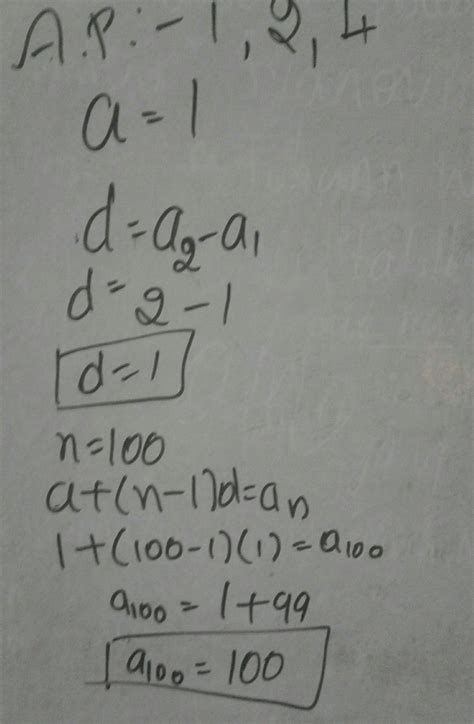 A.P:-1, 2, 4
a = 1
d = a₂ - a₁
d = 2 - 1
d = 1
n = 100
a + (n - 1)d = aₙ
1 + (100 - 1)(1) = a₁₀₀
a₁₀₀ = 1 + 99
a₁₀₀ = 100